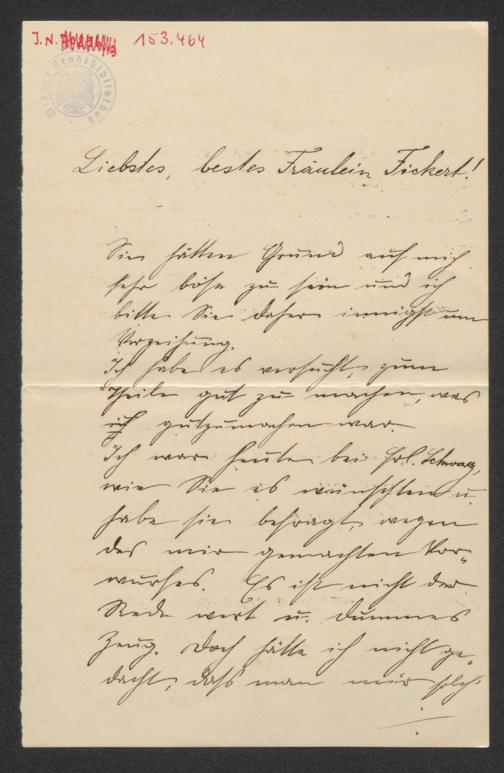 J. N. 153.464
Wiener Stadtbibliothek
Liebstes, bestes Fräulein Fickert!
Sie hätten Grund auf mich
sehr böse zu sein und ich
bitte Sie daher innigst um
Verzeihung.
Ich habe es versucht, zum
Theile gut zu machen, was
ich gutzumachen war.
Ich war heute bei Frl. Schwarz,
wie Sie es wünschten u.
habe sie befragt, wegen
des mir gemachten Vor-
wurfes. Es ist nicht der
Rede wert u. dummes
Zeug. Doch hätte ich nicht ge-
dacht, dass man mir solch